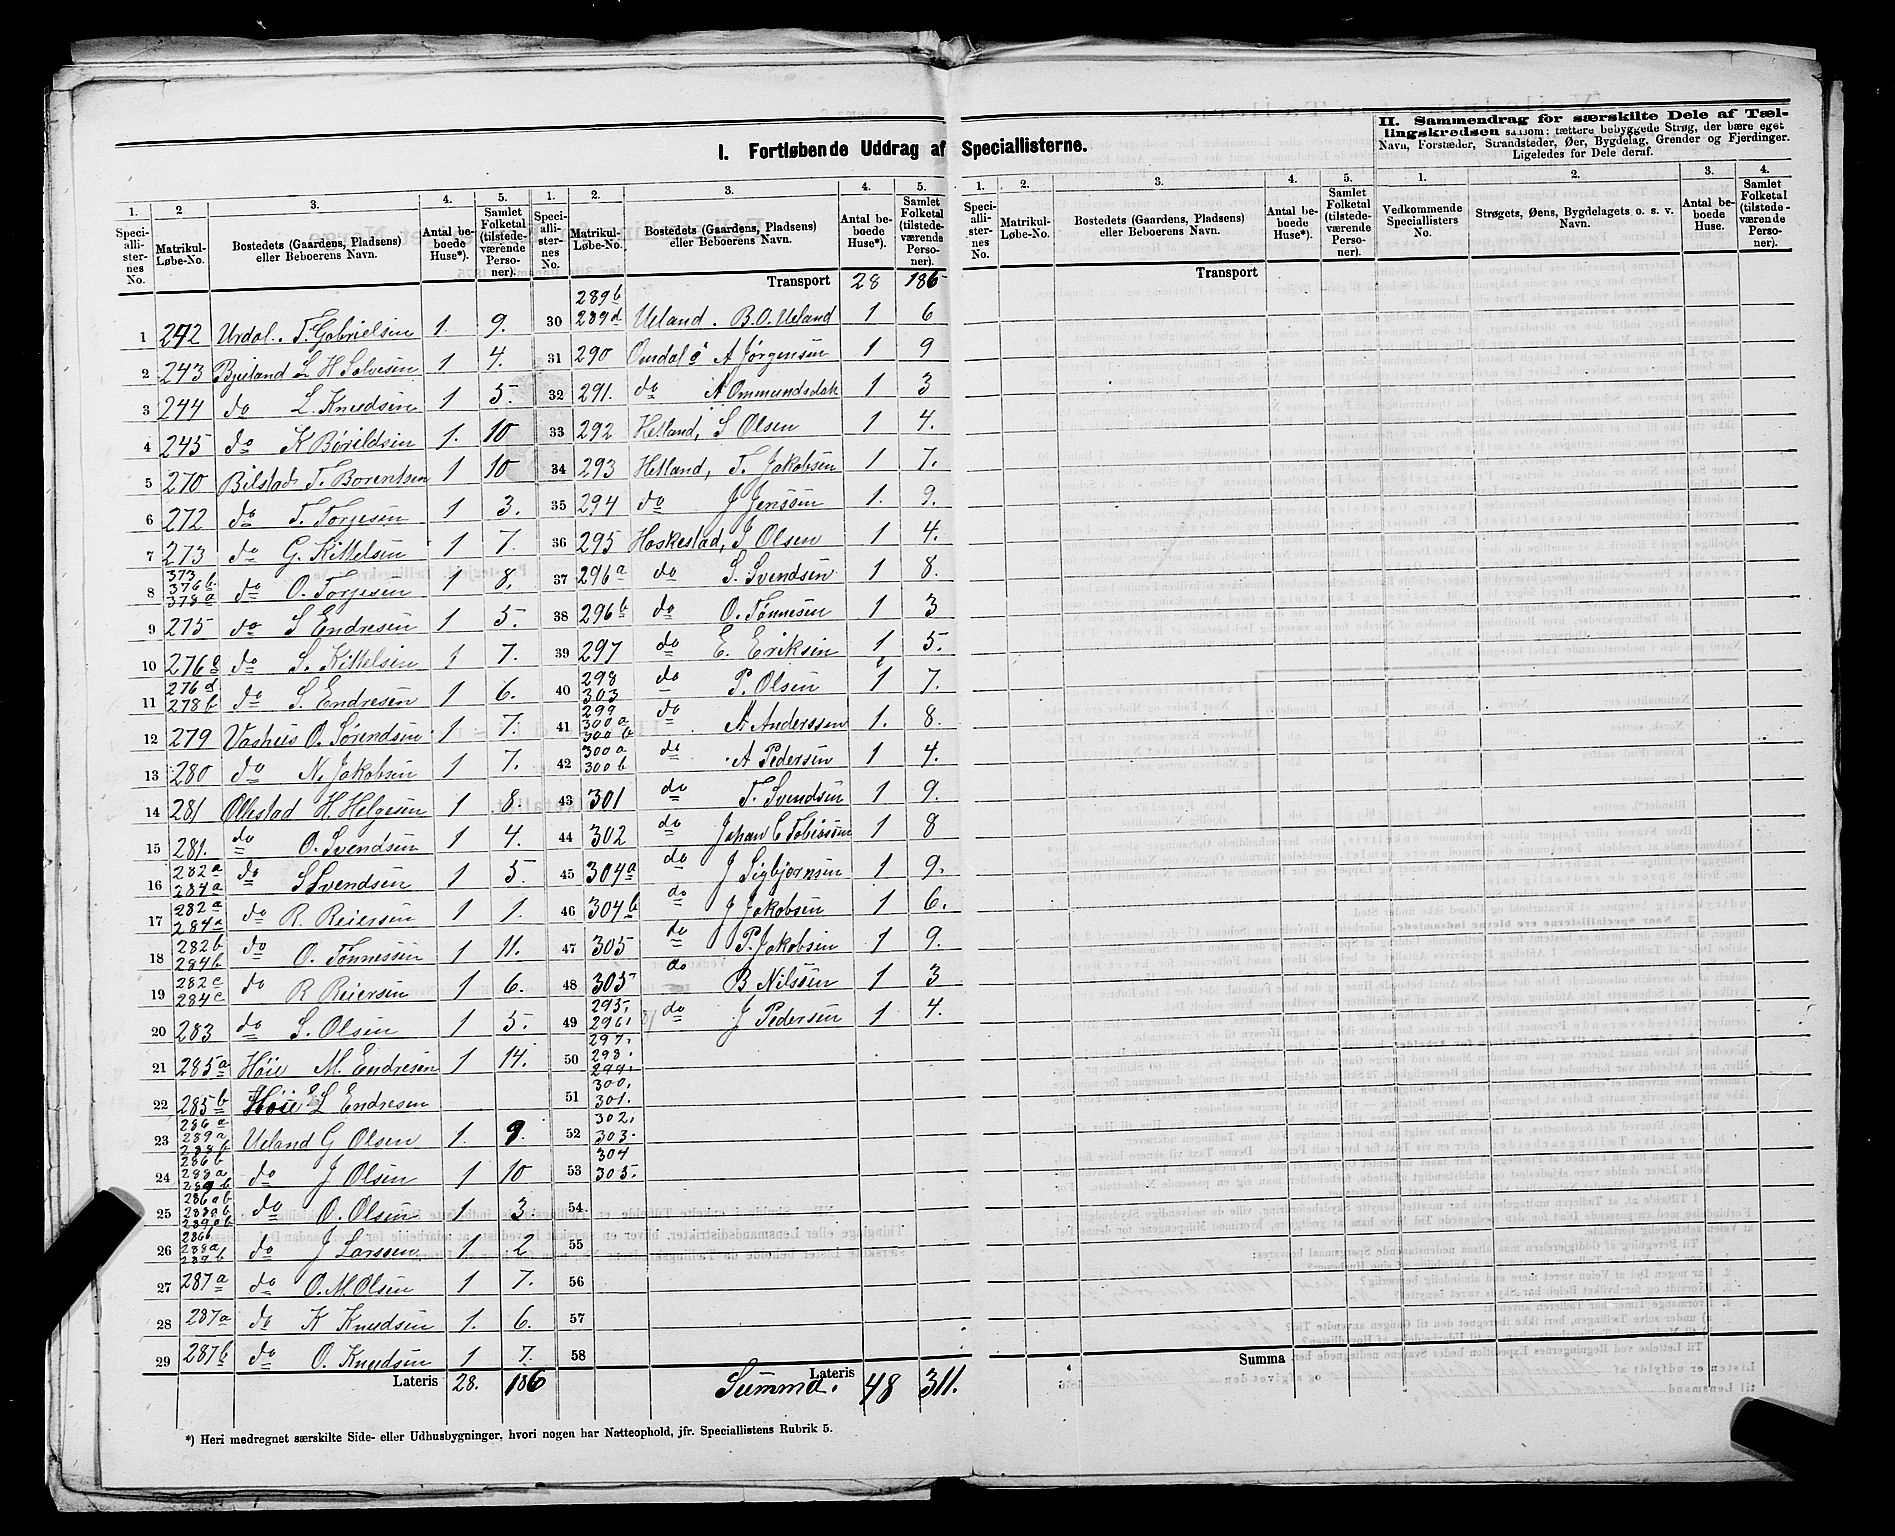 I. Fortløbende Uddrag af Speciallisterne.
II. Sammendrag for særskilte Dele af Tællingskredsen saasom: tættere bebyggede Strøg, der bære eget
Navn, Forstæder, Strandsteder, Øer, Bygdelag, Grender og Fjerdinger.
Ligeledes for Dele deraf.
1. 2 3. 4. 5. 1. 2. 3. 4. 5. 1. 2. 3. 4. 5. 1. 2. 3. 4.
Speciallisternes No. Matrikul-Løbe-No. Bostedets (Gaardens, Pladsens) eller Beboerens Navn. Antal beboede Huse*). Samlet Folketal (tilstedeværende Personer).
Speciallisternes No. Matrikul-Løbe-No. Bostedets (Gaardens, Pladsens) eller Beboerens Navn. Antal beboede Huse*). Samlet Folketal (tilstedeværende Personer).
Speciallisternes No. Matrikul-Løbe-No. Bostedets (Gaardens, Pladsens) eller Beboerens Navn. Antal beboede Huse*). Samlet Folketal (tilstedeværende Personer).
Vedkommende Speciallisters No. Strøgets, Øens, Bygdelagets o. s. v. Navn. Antal beboede Huse. Samlet Folketal (tilstedeværende Personer).
1 242 Urdal. T. Gabrielsen 1. 9.
2 243 Bjeland L H Salvesen 1 4.
3 244 do L. Knudsen 1 5.
4 245 do K Børildsen 1. 10
5 270 Bilstad T. Borentsen 1 10
6 272 do T. Torjesen 1 3.
7 273 do G. Kittelsen 1 7.
8 373 376b 378a do O. Torjesen 1 8.
9 275 do S Endresen 1 5.
10 276 do S. Kittelsen 1 7.
11 276d 278b do S. Endresen 1 6.
12 279 Vashus O. Sørendsen 1 7.
13 280 do N. Jakobsen 1 7.
14 281 Ollestad H. Helgesen 1 8.
15 281. do O. Svendsen 1 4.
16 282a 284a do S Svendsen 1 5.
17 282a 284a do R. Reiersen 1 1.
18 282b 284b do O. Tønnessen 1 11.
19 282c 284c do R Reiersen 1 6.
20 283 do S. Olsen 1 5.
21 285a Høie M. Endresen 1 14.
22 285b Høie L Endresen
23 286a 289a 288b Ueland G Olsen 1. 9.
24 286b 288a 289b do J Olsen 1 10
25 286ab 288ab 289ab do O. Olsen 1 3.
26 286b 288a 289b do J Larssen 1 2
27 287a do O. M. Olsen 1 7.
28 287a do K Knudsen 1. 6.
29 287b do O. Knudsen 1 7.
Lateris 28. 186
Transport 28 186
30 289b 289d Ueland. B. O. Ueland 1 6
31 290 Omdal A Jørgensen 1 9
32 291. do A Ommundsdatr 1 3
33 292 Hetland, S Olsen 1 4.
34 293 Hetland, T. Jakobsen 1 7.
35 294 do J Jenssen 1. 9.
36 295 Haskestad, J Olsen 1 4.
37 296a do S. Svendsen 1 8.
38 296b do O. Tønnesen 1 3
39 297 do E. Eriksen 1 5.
40 298 303 do P. Olsen 1 7.
41 299 300a 300b do A Anderssen 1. 8.
42 300a 300b do A Pedersen 1 4.
43 301 do T. Svendsen 1 9.
44 302 do Johan C Tobiassen 1 8
45 304a do J Sigbjørnsen 1 9.
46 304b do J Jakobsen 1 6.
47 305 do P. Jakobsen 1 9.
48 305 do B Nilssen 1 3
49 295. 296. do J Pedersen 1 4.
50 297. 298. 299.
51 300. 301.
52 302. 303.
53 304 305.
54
55
56
57
58
Summa. Lateris 48 311.
Transport
Summa
*) Heri medregnet særskilte Side- eller Udhusbygninger, hvori nogen har Natteophold, jfr. Speciallistens Rubrik 5.